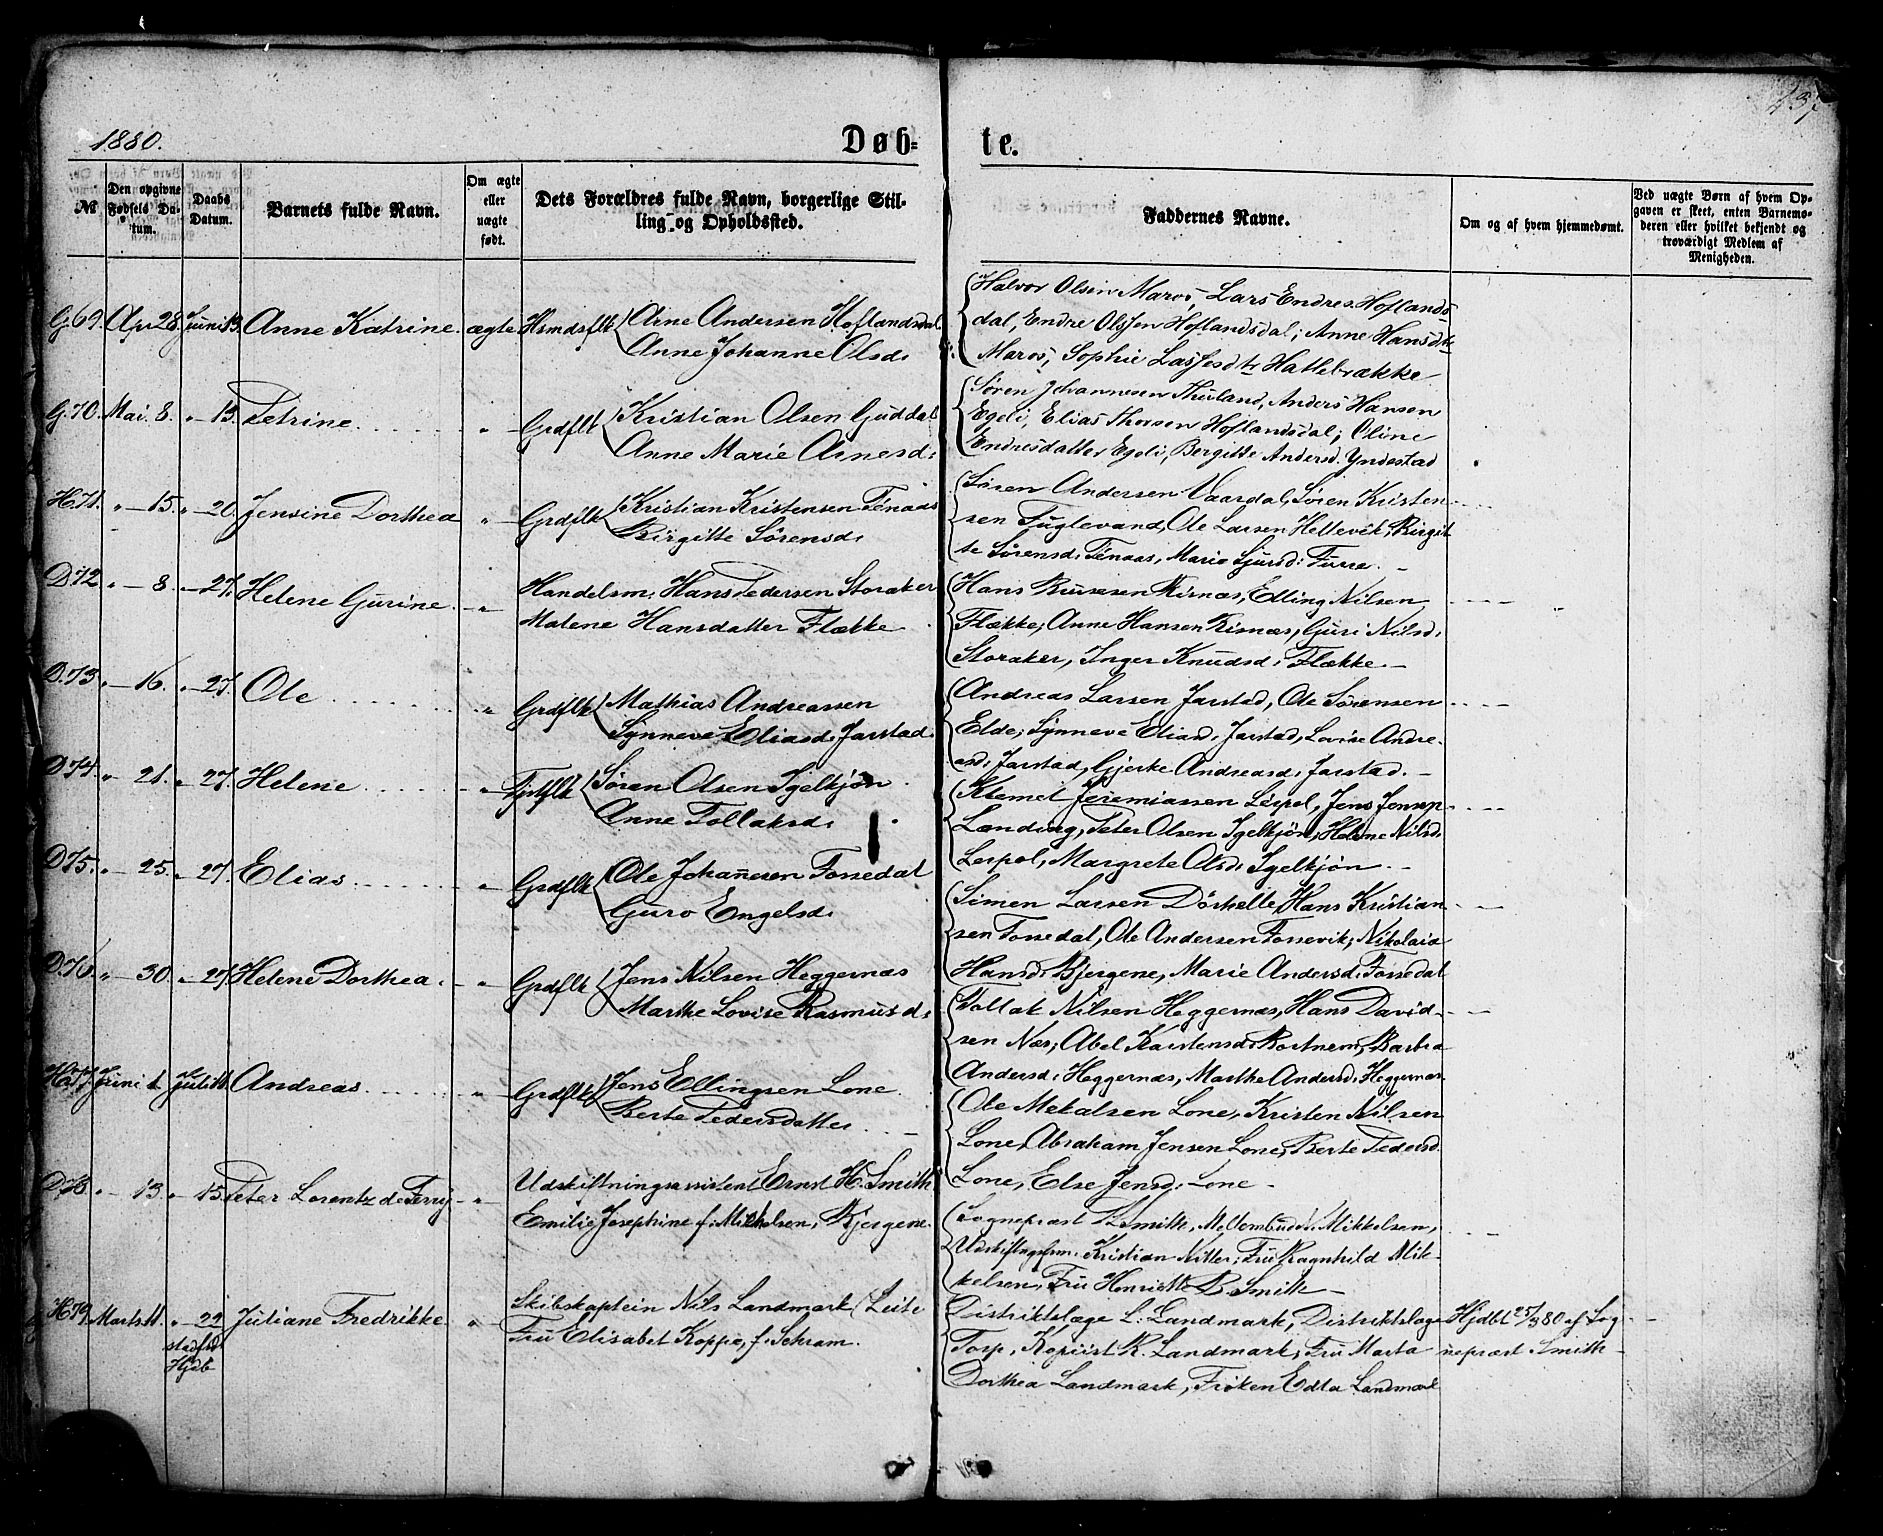 1880.
Døb-
te.
№
Den opgivne Fødsels Datum.
Daabs Datum.
Barnets fulde Navn.
Om ægte eller uægte født.
Dets Forældres fulde Navn, borgerlige Stilling og Opholdssted.
Faddernes Navne.
Om og af hvem hjemmedøbt.
Ved uægte Børn af hvem Opgaven er skeet, enten Barnemoderen eller hvilket bekjendt og troværdigt Medlem af Menigheden.
G.69. Apr 28. Juni 13. Anne Katrine. ægte Hsmdsflk Arne Andersen Hoflandsdal
Anne Johanne Olsd.
Halvor Olsen Maros, Lars Endres. Hoflands-
dal, Endre Olssen Hoflandsdal; Anne Hansdtr
Maros, Sophie Lassesdtr Hatlebrække
G.70. Mai 8. " - 13. Petrine " Grdflk Kristian Olsen Guddal
Anne Marie Arnesd:
Søren Johannesen Thuland, Anders Hansen
Egeli, Elias Thorsen Hoflandsdal; Oline
Endresdatter Egeli, Bergitte Andersd. Yndestad
H.71. " - 15. " - 20. Jensine Dorthea " Grdflk Kristian Kristensen Tenaas
Birgitte Sørensd.
Søren Andersen Vaardal, Søren Kristen-
sen Fuglevand, Ole Larsen Hellevik, Birgit
te Sørensd. Tenaas, Marie Sjursd: Furre. -
D.72. " - 8. " - 27. Helene Gurine. " Handelsm. Hans Pedersen Storaker
Malene Hansdatter Flække
Hans Risnæs, Elling Nilsen
Flække, Anne Hansen Risnæs, Guri Nilsd.
Storaker, Inger Knudsd. Flække. -
D.73. " - 16. " - 27. Ole " Grdflk Mathias Andreassen
Synneve Eliasd. Jarstad.
Andreas Larsen Jarstad, Ole Sørensen
Elde, Synneve Eliasd. Jarstad, Lovise Andre-
asd. Jarstad, Gjerke Andreasd. Jarstad. -
D.74. " - 21. " - 27. Helene " Søren Olsen Igelkjøn
Anne Tollaksd.
Klemet Jeremiassen Leipol, Jens Jensen
Lending, Peter Olsen Igelkjøn, Helene Nilsd.
Leipol, Margrete Olsd. Igelkjøn -
D.75. " - 25. " - 27. Elias " Grdflk Ole Johannesen Fossedal
Guro Engelsd.
Simen Larsen Dørhelle, Hans Kristian-
sen Fossedal, Ole Andersen Fossevik, Nikolaid
Hansd. Bjergene, Marie Andersd. Fossedal
D.76. " - 30. " - 27. Helene Dorthea. " Grdflk Jens Nilsen Heggernæs
Marthe Lovise Rasmusd.
Tollak Nilsen Heggernæs, Hans David-
sen Næs, Abel Karstensd. Bortnem, Barbra
Andersd. Heggernæs, Marthe Andersd. Heggernæs.
H.77. Juni 1. Juli 11. Andreas. " Grdflk Jens Ellingsen Lone
Berte Pedersdatter
Ole Mekalsen Lone, Kristen Nilsen
Lone, Abraham Jensen Lone, Berte Pedersd.
Lone, Else Jensd. Lone -
D.78. " - 13. " - 15. Peter Lorentz de Ferry " Udskiftningsassistent Ernst H. Smith
Emilie Josephine f. Mikkelsen, Bjergene.
Sogneprest Smith, Mikkelsen,
Kristian Nitter, Fru Ragnhild Mik-
kelsen, Fru Henriette B. Smith -
H.79. Marts 11. " - 22 stadf. Hjdb Juliane Fredrikke " Skibskaptein Nils Landmark, Leite
Fru Elisabet Koppe, f. Schram.
Distriktslæge L. Landmark, Distriktslæge
Torp, Kopiist R. Landmark, Fru Marta
Dorthea Landmark, Frøken Edla Landmark
Hjdbt 25/3 80 af Sog
neprest Smith -